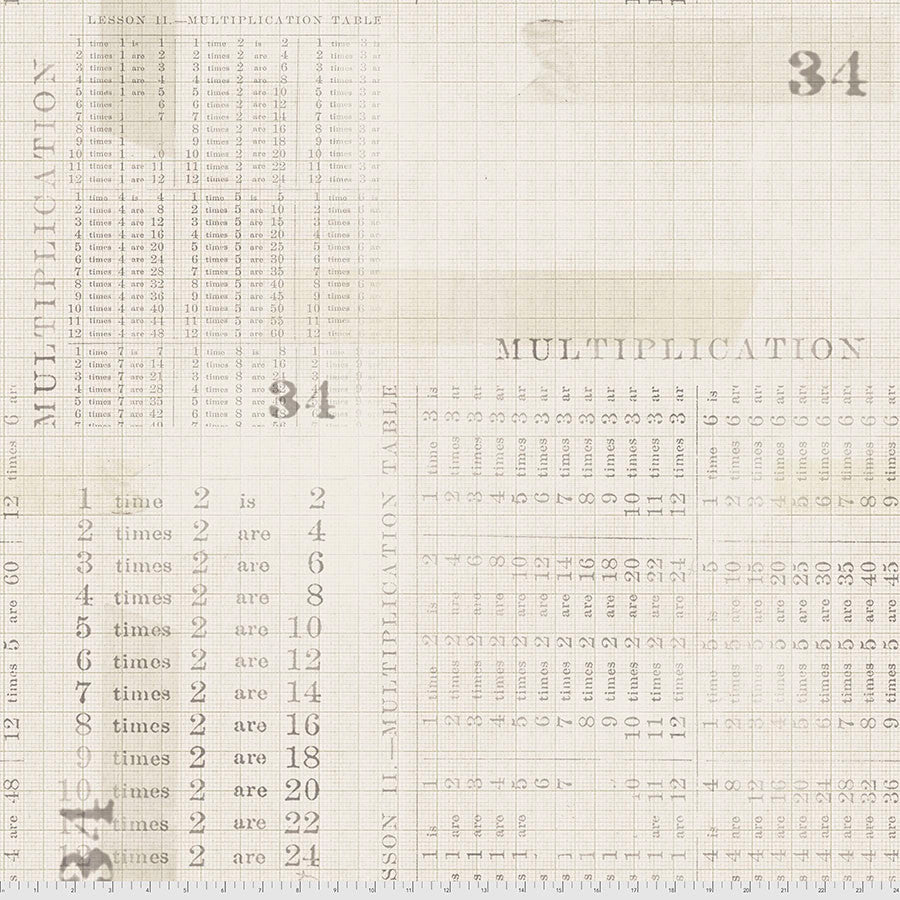 LESSON II.—MULTIPLICATION TABLE
1 time 1 is 1 1 time 2 is 2 1 time 3 is
2 times 1 are 2 2 times 2 are 4 2 times 3 ar
3 times 1 are 3 3 times 2 are 6 3 times 3 ar
4 times 1 are 4 4 times 2 are 8 4 times 3 ar
5 times 1 are 5 5 times 2 are 10 5 times 3 ar
6 times 6 6 times 2 are 12 6 times 3 ar
7 times 1 7 7 times 2 are 14 7 times 3 ar
8 times 1 8 times 2 are 16 8 times 3 ar
9 times 1 9 times 2 are 18 9 times 3 ar
10 times 1 10 times 2 are 20 10 times 3 ar
11 times 1 are 11 11 times 2 are 22 11 times 3 ar
12 times 1 are 12 12 times 2 are 24 12 times 3 ar
1 time 4 is 4 1 time 5 is 5 1 time 6 is
2 times 4 are 8 2 times 5 are 10 2 times 6 ar
3 times 4 are 12 3 times 5 are 15 3 times 6 ar
4 times 4 are 16 4 times 5 are 20 4 times 6 ar
5 times 4 are 20 5 times 5 are 25 5 times 6 ar
6 times 4 are 24 6 times 5 are 30 6 times 6 ar
7 times 4 are 28 7 times 5 are 35 7 times 6 ar
8 times 4 are 32 8 times 5 are 40 8 times 6 ar
9 times 4 are 36 9 times 5 are 45 9 times 6 ar
10 times 4 are 40 10 times 5 are 50 10 times 6
11 times 4 are 44 11 times 5 are 55 11 times
12 times 4 are 48 12 times 5 are 60 12 times 6
1 time 7 is 7 1 time 8 is 8 1 time 9 is
2 times 7 are 14 2 times 8 are 16 2 times 9
3 times 7 are 21 3 times 8 are 24 3 times
4 times 7 are 28 4 times 8 are
5 times 7 are 35 5 times 8
6 times 7 are 42 6 times 8 are
7 times 7 are 49 7 times 8 are 56
MULTIPLICATION
34
34
MULTIPLICATION
1 time 2 is 2
2 times 2 are 4
3 times 2 are 6
4 times 2 are 8
5 times 2 are 10
6 times 2 are 12
7 times 2 are 14
8 times 2 are 16
9 times 2 are 18
10 times 2 are 20
11 times 2 are 22
12 times 2 are 24
34
12 times 6 ar
12 times 5 are 60
4 are 48
SSON II.—MULTIPLICATION TABLE
1 is 1 1 time 2 is 2 1 time 3 is
1 are 2 2 times 2 are 4 2 times 3 ar
1 are 3 3 times 2 are 6 3 times 3 ar
1 are 4 4 times 2 are 8 4 times 3 ar
1 are 5 5 times 2 are 10 5 times 3 ar
6 6 times 2 are 12 6 times 3 ar
1 7 7 times 2 are 14 7 times 3 ar
1 8 times 2 are 16 8 times 3 ar
1 9 times 2 are 18 9 times 3 ar
1 10 times 2 are 20 10 times 3 ar
1 are 11 11 times 2 are 22 11 times 3 ar
1 are 12 12 times 2 are 24 12 times 3 ar
4 is 4 1 time 5 is 5 1 time 6 is
4 are 8 2 times 5 are 10 2 times 6 ar
4 are 12 3 times 5 are 15 3 times 6 ar
4 are 16 4 times 5 are 20 4 times 6 ar
4 are 20 5 times 5 are 25 5 times 6 ar
4 are 24 6 times 5 are 30 6 times 6 ar
4 are 28 7 times 5 are 35 7 times 6 ar
4 are 32 8 times 5 are 40 8 times 6 ar
4 are 36 9 times 5 are 45 9 times 6 ar
1 2 3 4 5 6 7 8 9 10 11 12 13 14 15 16 17 18 19 20 21 22 23 24